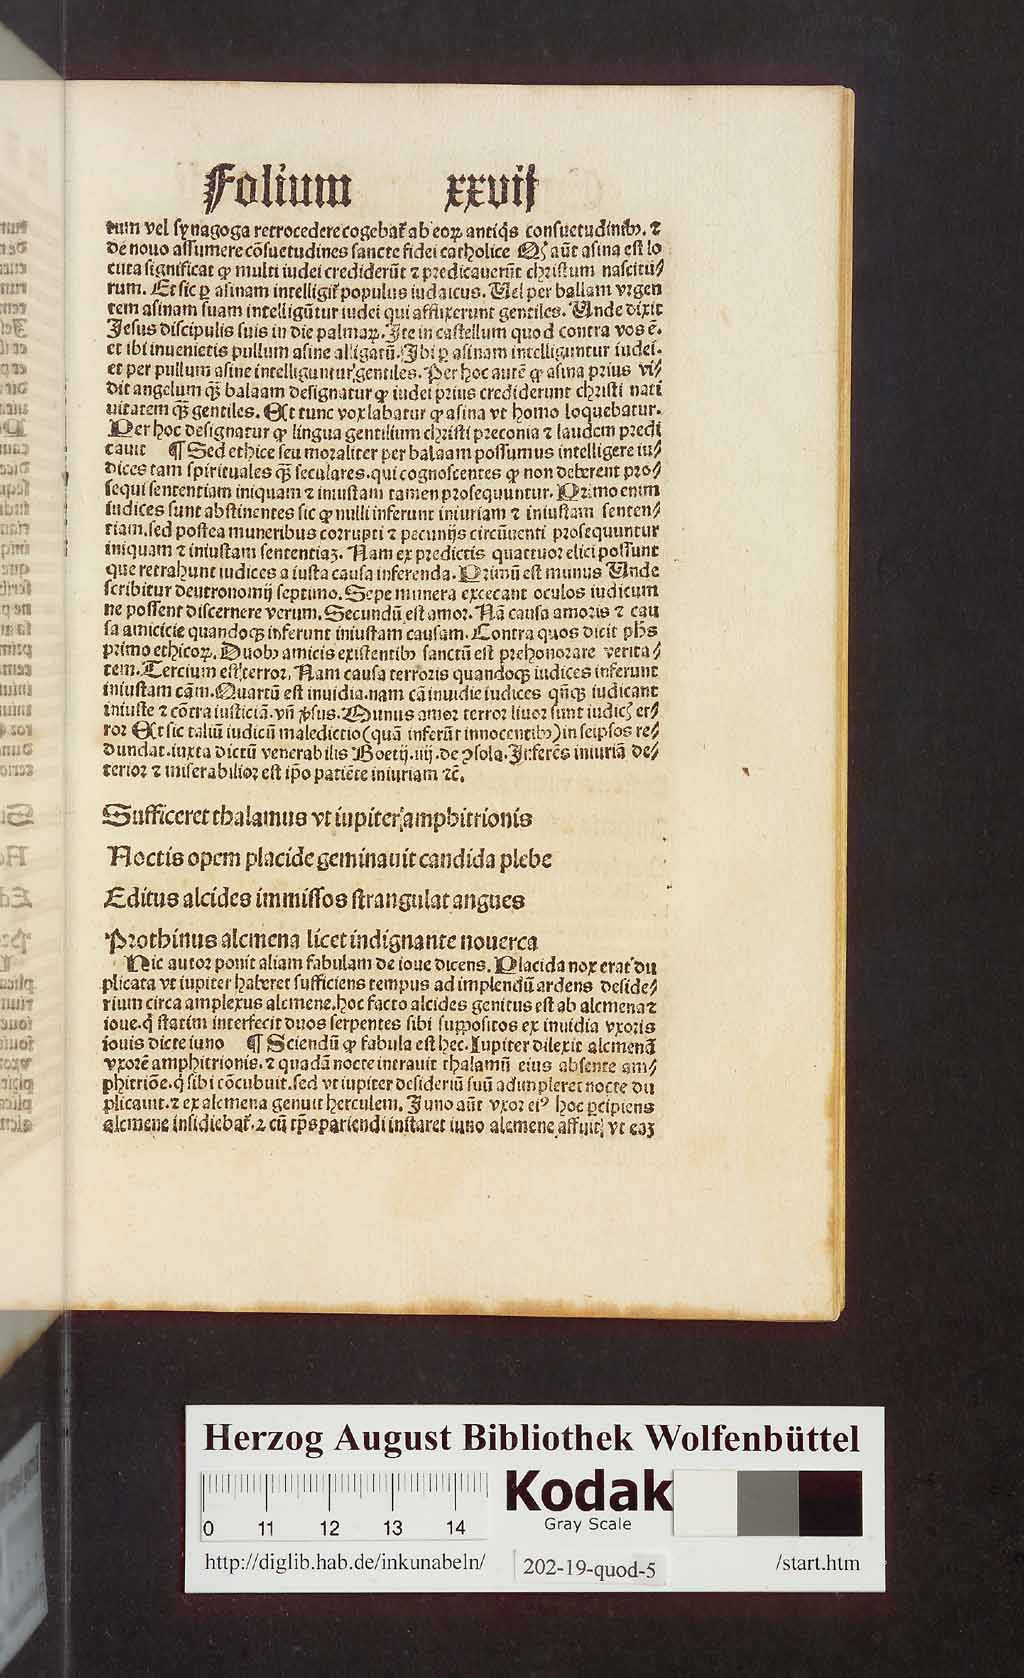 Folium xxvij
tum vel synagoga retrocedere cogebat̃ ab eoꝝ antiq̃s consuetudinibꝫ. ⁊
de nouo assumere cõsuetudines sancte fidei catholice Qꝫ aũt asina est lo
cuta significat ꝙ multi iudei crediderũt ⁊ predicauerũt christum nascitu⸗
rum. Et sic ꝑ asinam intelligit̃ populus iudaicus. Uel per ballam vrgen
tem asinam suam intelligũtur iudei qui afflixerunt gentiles. Unde dixit
Jesus discipulis suis in die palmaꝝ. Ite in castellum quod contra vos ẽ.
et ibi inuenietis pullum asine alligatũ. Ibi ꝑ asinam intelliguntur iudei.
et per pullum asine intelliguntur gentiles. Per hoc autẽ ꝙ asina prius vi⸗
dit angelum q̃ꝫ balaam designatur ꝙ iudei prius crediderunt christi nati
uitatem q̃ꝫ gentiles. Et tunc vox labatur ꝙ asina vt homo loquebatur.
Per hoc designatur ꝙ lingua gentilium christi preconia ⁊ laudem predi
cauit ¶ Sed ethice seu moraliter per balaam possumus intelligere iu⸗
dices tam spirituales q̃ꝫ seculares. qui cognoscentes ꝙ non deberent pro⸗
sequi sententiam iniquam ⁊ iniustam tamen prosequuntur. Primo enim
iudices sunt abstinentes sic ꝙ nulli inferunt iniuriam ⁊ iniustam senten⸗
tiam. sed postea muneribus corrupti ⁊ pecunijs circũuenti prosequuntur
iniquam ⁊ iniustam sententiaꝫ. Nam ex predictis quattuor elici possunt
que retrahunt iudices a iusta causa inferenda. Primũ est munus Unde
scribitur deutronomij septimo. Sepe munera excecant oculos iudicum
ne possent discernere verum. Secundũ est amor. Nã causa amoris ⁊ cau
sa amicicie quandoqꝫ inferunt iniustam causam. Contra quos dicit ph̃s
primo ethicoꝝ. Duobꝫ amicis existentibꝫ sanctũ est prehonorare verita⸗
tem. Tercium est terror. Nam causa terroris quandoqꝫ iudices inferunt
iniustam cãm. Quartũ est inuidia. nam cã inuidie iudices qñqꝫ iudicant
iniuste ⁊ cõtra iusticiã. vñ ꝟsus. Munus amor terror liuor sunt iudicꝫ er⸗
ror Et sic taliũ iudicũ maledictio (quã inferũt innocentibꝫ) in seipsos re⸗
dundat. iuxta dictũ venerabilis Boetij .iiij. de ꝯsola. Inferẽs iniuriã de⸗
terior ⁊ miserabilior est ip̃o patiẽte iniuriam ⁊c̃.
Sufficeret thalamus vt iupiter amphitrionis
Noctis opem placide geminauit candida plebe
Editus alcides immissos strangulat angues
Prothinus alcmena licet indignante nouerca
Hic autor ponit aliam fabulam de ioue dicens. Placida nox erat du
plicata vt iupiter haberet sufficiens tempus ad implendũ ardens deside⸗
rium circa amplexus alcmene. hoc facto alcides genitus est ab alcmena ⁊
ioue. q̇ statim interfecit duos serpentes sibi suppositos ex inuidia vxoris
iouis dicte iuno ¶ Sciendũ ꝙ fabula est hec. Iupiter dilexit alcmenã
vxorẽ amphitrionis. ⁊ quadã nocte intrauit thalamũ eius absente am⸗
phitriõe. q̇ sibi cõcubuit. sed vt iupiter desideriũ suũ adimpleret nocte du
plicauit. ⁊ ex alcmena genuit herculem. Juno aũt vxor eiꝰ hoc ꝑcipiens
alcmene insidiebat̃. ⁊ cũ tp̃s pariendi instaret iuno alcmene affuit, vt eaꝫ
Herzog August Bibliothek Wolfenbüttel
0 11 12 13 14
Kodak
Gray Scale
http://diglib.hab.de/inkunabeln/ 202-19-quod-5 /start.htm